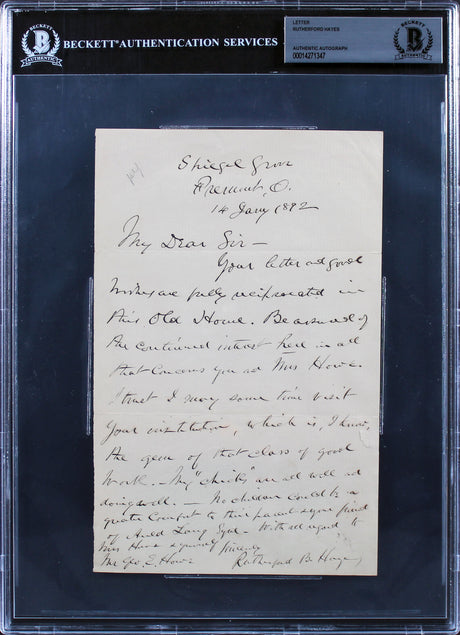 BECKETT AUTHENTIC
BECKETT® AUTHENTICATION SERVICES
LETTER
RUTHERFORD HAYES
AUTHENTIC AUTOGRAPH
00014271347
BECKETT AUTHENTIC
Spiegel Grove
Fremont, O.
14 Jany 1892
My Dear Sir —
Your letter and good
wishes are fully reciprocated in
this Old Home. Be assured of
the continued interest here in all
that concerns you and Mrs Howe.
I trust I may some time visit
your institution, which is, I know,
the gem of that class of good
work. — My "chicks" are all well and
doing well. — No children could be a
greater comfort to their parent &
of Auld Lang Syne. — With all regard to
Mrs Howe & yourself sincerely
Mr Geo. E. Howe Rutherford B. Hayes